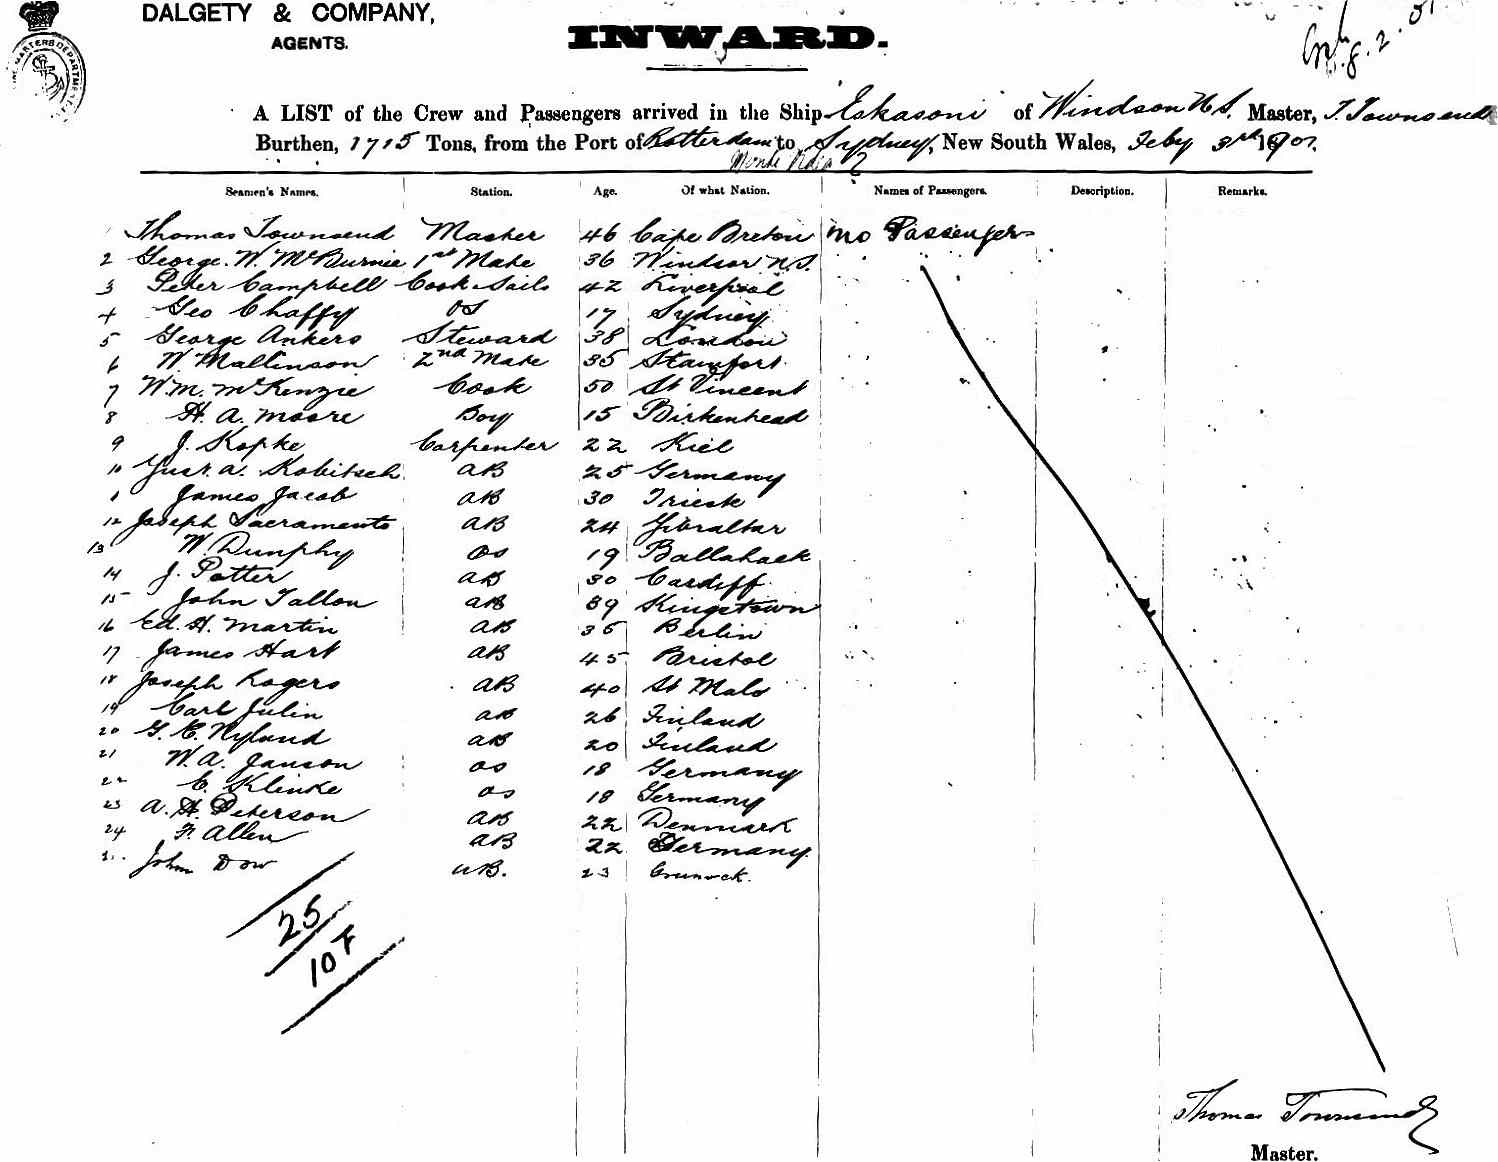 DALGETY & COMPANY,
AGENTS.
INWARD.
8.2.01
A LIST of the Crew and Passengers arrived in the Ship Eskasoni of Windsor N.S. Master, T. Townsend
Burthen, 1715 Tons, from the Port of Rotterdam to Sydney, New South Wales, Feby 3rd 1901.
Seamen's Names. Station. Age. Of what Nation. Names of Passengers. Description. Remarks.
Thomas Townsend Master 46 Cape Breton no Passengers
2 George. W. McBurnie 1st Mate 36 Windsor N.S.
3 Peter Campbell Cook & Sails 42 Liverpool
4 Geo Chaffy OS 17 Sydney
5 George Ankers Steward 38 London
6 W. Mallinson 2nd Mate 35
7 Wm. McKenzie Cook 50 St Vincent
8 H. A. Moore Boy 15 Birkenhead
9 J. Kopke Carpenter 22 Kiel
10 Gust. A. Kobitsch AB 25 Germany
1 James Jacob AB 30 Trieste
12 Joseph Sacramento AB 24 Gibraltar
13 W. Dunphy OS 19 Ballahack
14 J. Potter AB 30 Cardiff
15 John Tallon AB 39 Kingstown
16 Ed. H. Martin AB 36 Berlin
17 James Hart AB 45 Bristol
18 Joseph Rogers AB 40 St Malo
19 Carl Julin AB 26 Finland
20 G. E. Nylund AB 20 Finland
21 W. A. Janson OS 18 Germany
22 E. Klinke OS 18 Germany
23 A. H. Peterson AB 22 Denmark
24 F. Allen AB 22 Germany
John Dow AB. 23
25
10 F
Thomas Townsend
Master.